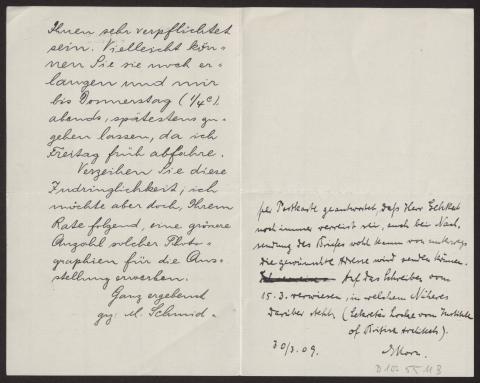 Ihnen sehr verpflichtet
sein. Vielleicht kön-
nen Sie sie noch er-
langen und mir
bis Donnerstag (1/4 c).
abends, spätestens zu-
gehen lassen, da ich
Freitag früh abfahre.
Verzeihen Sie diese
Zudringlichkeit; ich
möchte aber doch, Ihrem
Rate folgend, eine grössere
Anzahl solcher Photo-
graphien für die Aus-
stellung erwerben.
Ganz ergebenst
gez. M. Schmid.
per Postkarte geantwortet, dass Herr
noch immer verreist sei, auch bei Nach-
sendung des Briefes wohl kaum von unterwegs
die gewünschte Adresse wird senden können.
Auf das Schreiben vom
15.3. verwiesen, in welchem Näheres
darüber steht. (Sekretär Locke vom Institute
of British Architects).
30/3.09.